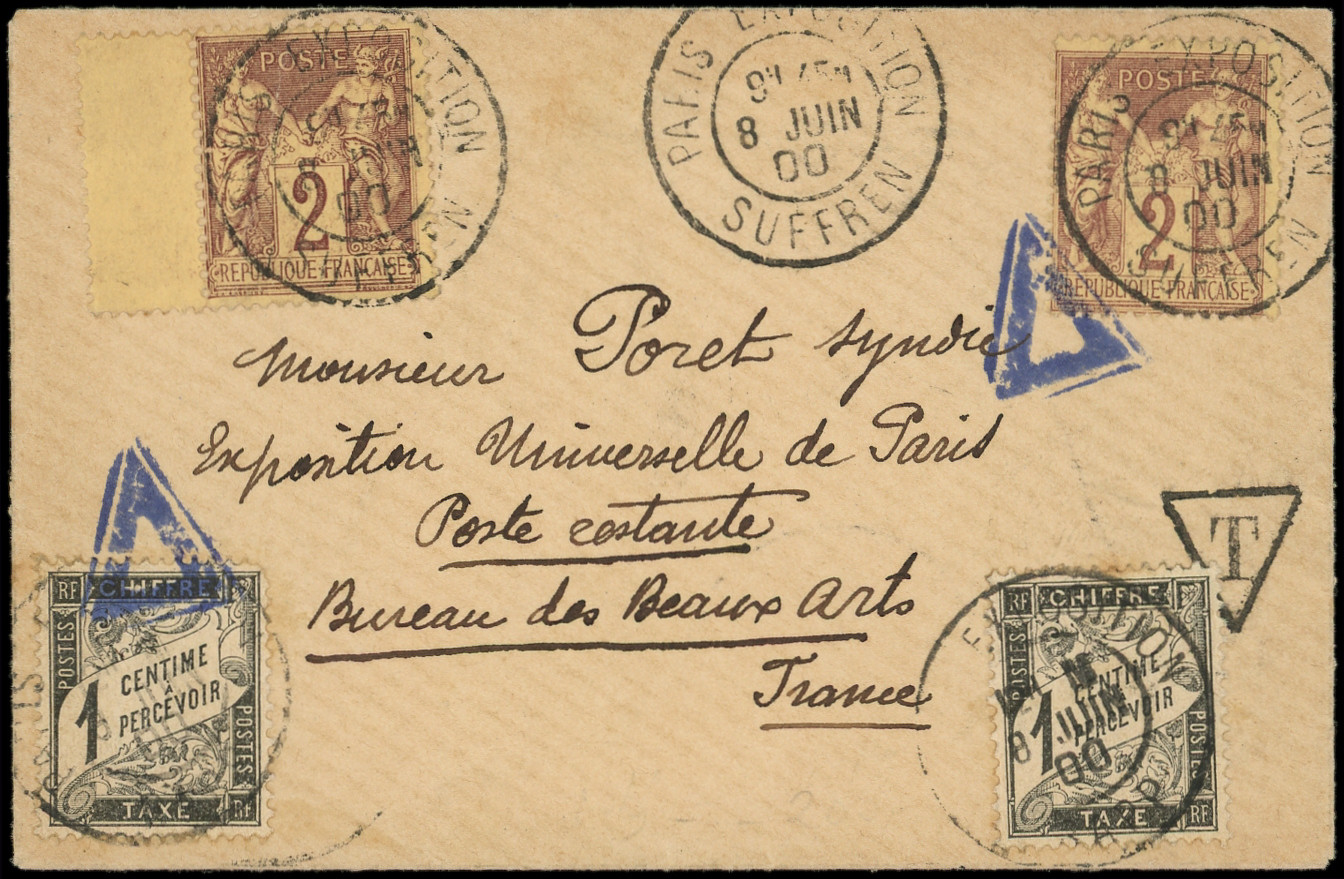 POSTE
2
RÉPUBLIQUE FRANÇAISE
EXPOSITION
PARIS EXPOSITION
9H 45M
8 JUIN
00
SUFFREN
POSTE
2
RÉPUBLIQUE FRANÇAISE
PARIS EXPOSITION
8 JUIN
00
SUFFREN
Monsieur Poret syndic
Exposition Universelle de Paris
Poste restante
Bureau des Beaux Arts
France
T
RF CHIFFRE
POSTES
1 CENTIME
À
PERCEVOIR
POSTES
TAXE RF
RF CHIFFRE
POSTES
1 CENTIME
PERCEVOIR
POSTES
TAXE RF
EXPOSITION
8 JUIN
00